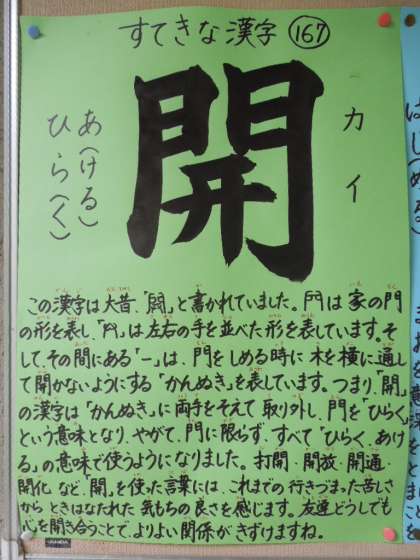 すてきな漢字 167
開
カイ
あ(ける)
ひら(く)
この漢字は大昔、「開」と書かれていました。門は家の門
の形を表し「廾」は左右の手を並べた形を表しています。そ
して、その間にある「一」は、門をしめる時に木を横に通し
て開かないようにする「かんぬき」を表しています。つまり、「開」
の漢字は「かんぬき」に両手をそえて取り外し、門を「ひらく」
という意味となり、やがて、門に限らず、すべて「ひらく、あけ
る」の意味で使うようになりました。打開・開放・開通・
開化など、「開」を使った言葉には、これまでの行きづまった苦しさ
からときはなたれた気もちの良さを感じます。友達どうしでも
心を開き合うことで、よりよい関係がきずけますね。
はじめる)